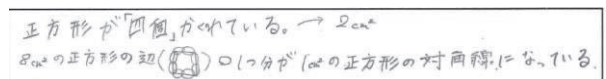 正方形が「四個」かくれている。→ 2cm²
8cm²の正方形の辺( )○1つ分が1cm²の正方形の対角線になっている。